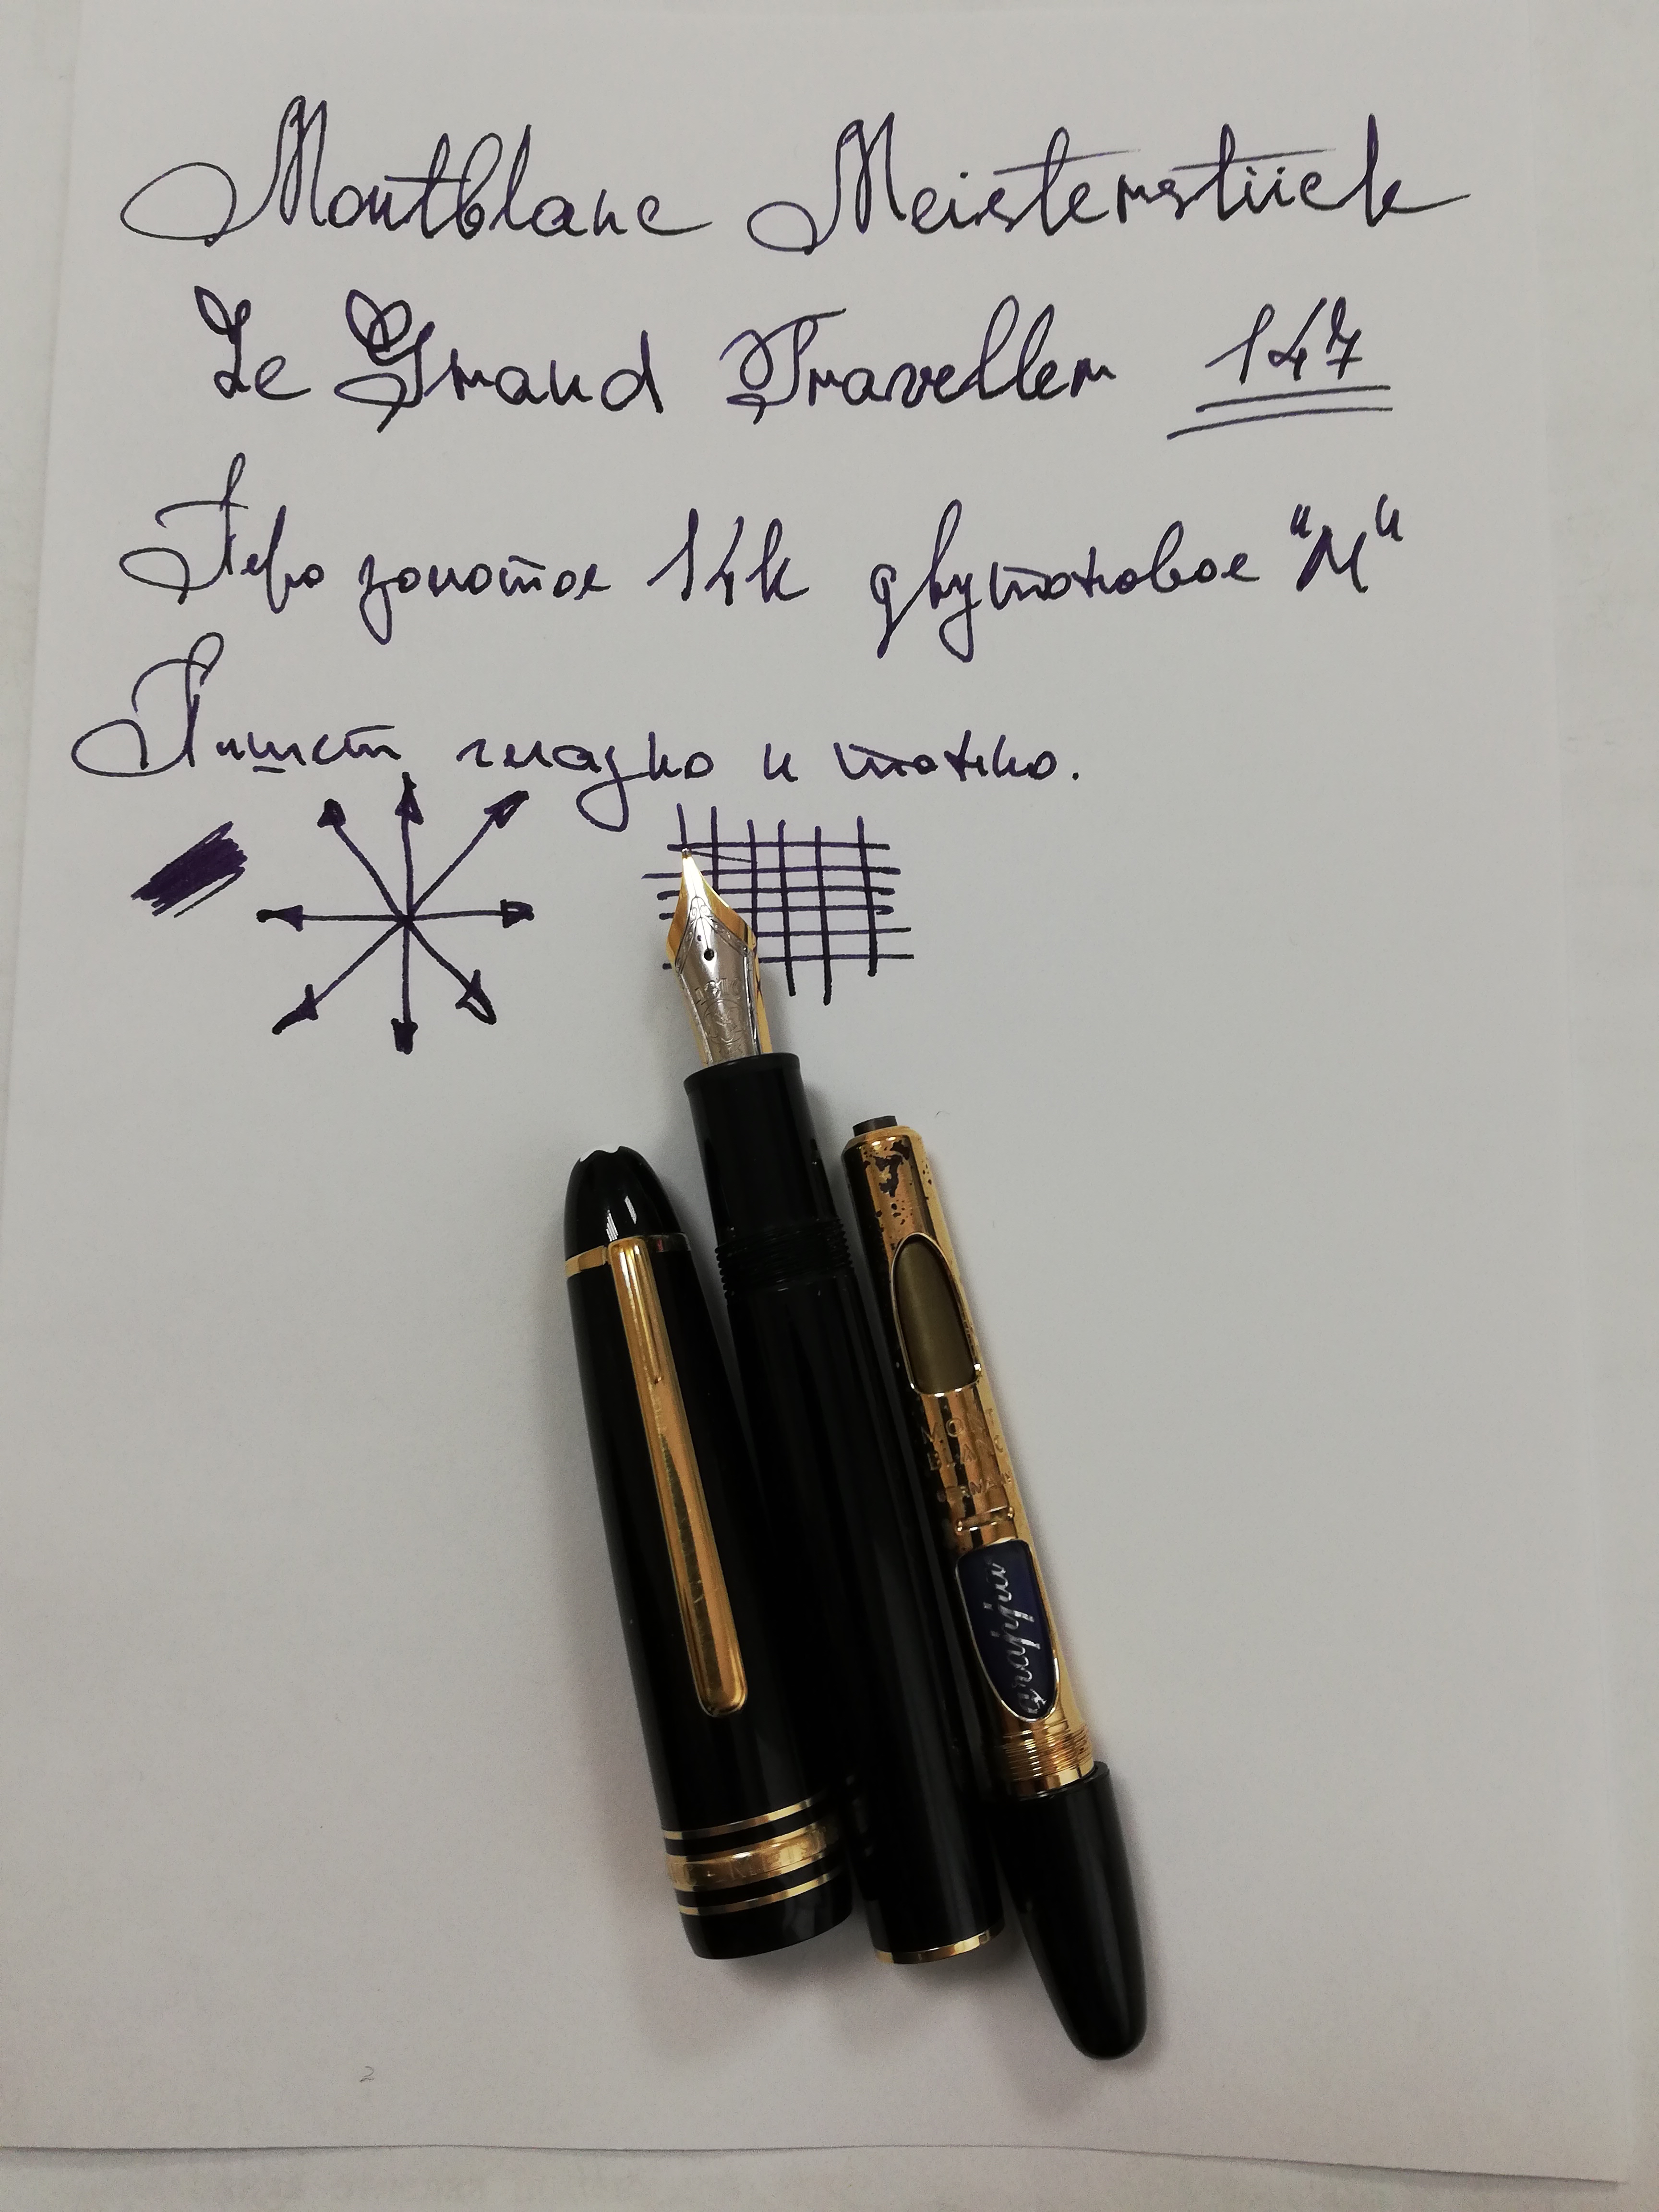 Montblanc Meisterstück
Le Grand Traveller 147
Перо золотое 14k двутоновое "М"
Пишет гладко и тонко.
MONT
BLANC
GERMANY